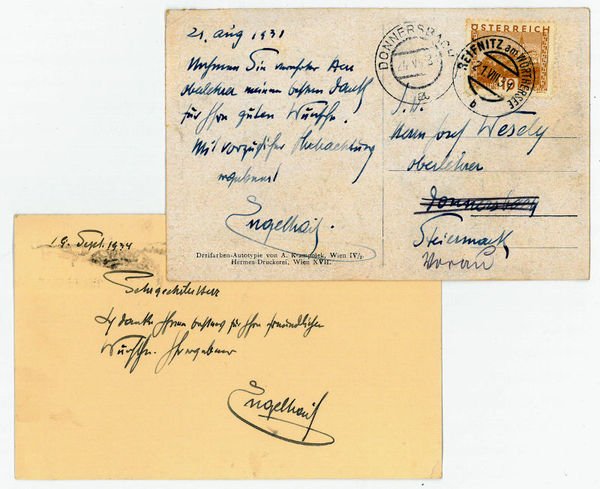 21. Aug 1931
Nehmen Sie verehrter Herr
Oberlehrer meinen besten Dank
für Ihre guten Wünsche.
Mit vorzüglicher Hochachtung
ergebenst
Engelhart
Dreifarben-Autotypie von A. Krampolek, Wien IV/3.
Hermes-Druckerei, Wien XVII.
ÖSTERREICH
DONNERSBACH
a
REIFNITZ am WÖRTHERSEE
b
Herrn Josef Wesely
Oberlehrer
Donnersbach
Steiermark
Vorau
19. Sept. 1934
Sehrgeehrter Herr
Ich danke Ihnen bestens für Ihre freundlichen
Wünsche. Ihr ergebener
Engelhart